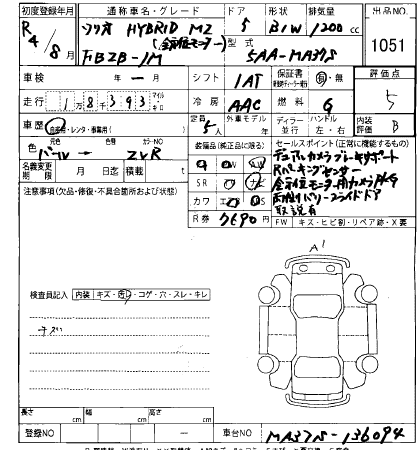 初度登録年月 通称車名・グレード ドア 形状 排気量 出品NO
R4/8月 ソリオ HYBRID MZ 5 B/W 1200cc 1051
(全方位モニター)
型式
FBZB-JM 5AA-MA37S
車検 年 ー 月 シフト IAT 保証書 有・無 評価点 5
走行 1万8千393 マイル キロ 冷房 AAC 燃料 G 内装評価 B
車歴 自家用・レンタ・事業用( ) 定員 5人 外車モデル 年 ディーラー 並行 ハンドル 左・右
色 元色 パール → カラーNO ZVR 装備品(純正品に限る) セールスポイント(正常に機能するもの)
名義変更期限 月 日 積載 t SR ナビ デュアルカメラブレーキサポート
Rパーキングセンサー
注意事項(欠品・修復・不具合箇所および状態) カワ 全方位モニター用カメラPKG
両側パワースライドドア
R券 7690 取説有
FW キズ・ヒビ割・リペア跡・X要
A1
検査員記入 内装 キズ・汚・コゲ・穴・スレ・キレ
チズ
長さ cm 幅 cm 高さ cm
登録NO ー 車台NO MA37S-136094